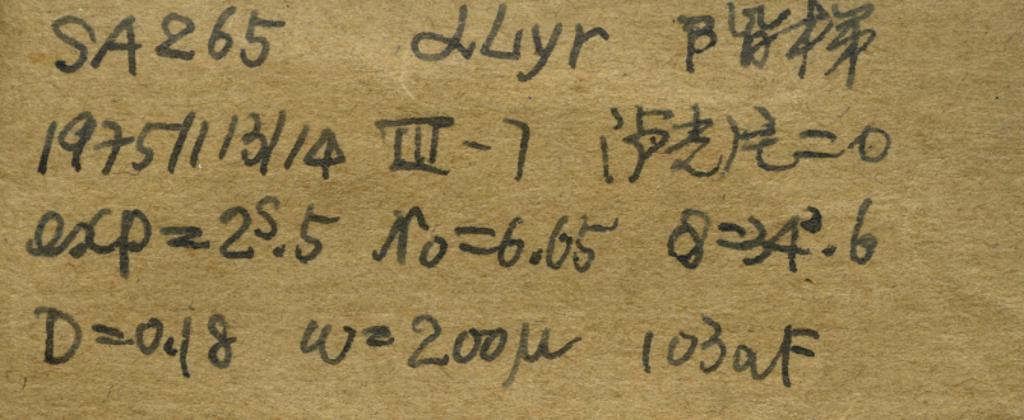 SA265 αLyr 阶梯
1975/11/13/14 III-7 滤光片=0
exp=2ˢ.5 r₀=6.65 θ=34°.6
D=0.18 w=200μ 103aF